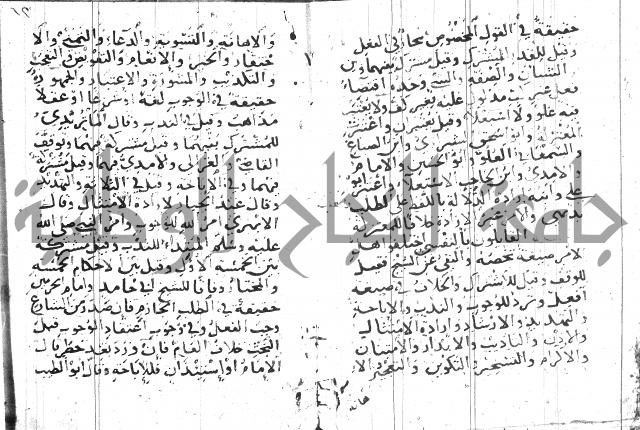 حقيقة في القول المخصوص مجاز في الفعل
وقيل للقدر المشترك وقيل مشترك بينهما وبين
الشان والصفة والشي وحده اقتضاء
فعل غير كف مدلول عليه بغير كف ولا يعتبر
فيه علو ولا استعلا وقيل يعتبران واعتبرت
المعتزلة وابو اسحق الشيرازي وابن الصباغ
والسمعاني العلو وابو الحسين والامام
والامدي وابن الحاجب الاستعلا واعتبر ابو
علي وابنه ارادة الدلالة باللفظ على الطلب
والامر غير الارادة خلافا للمعتزلة
القايلون بالنفسي اختلفوا هل
للامر صيغة تخصه والنفي عن الشيخ فقيل
للوقف وقيل للاشتراك والخلاف في صيغة
افعل وترد للوجوب والندب والاباحة
والتهديد والارشاد وارادة الامتثال
والاذن والتاديب والانذار والامتنان
والاكرام والتسخير والتكوين والتعجيز الا
هانة
والاهانة والتسوية والدعاء والتمني والا
حتقار والخبر والانعام والتفويض والتعجب
والتكذيب والمشورة والاعتبار والجمهور
حقيقة في الوجوب لغة او شرعا او عقلا
مذاهب وقيل في الندب وقال الماتريدي
للمشترك بينهما وقيل مشتركة بينهما وتوقف
القاضي والغزالي والامدي فيها وقيل مشتركة
فيهما وفي الاباحة وقيل في الثلاثة والتهديد
وقال عبد الجبار لارادة الامتثال وقال
الابهري امر الله للوجوب وامر النبي صلى الله
عليه وسلم المبتدا للندب وقيل مشتركة
بين الخمسة الاول وقيل بين الاحكام الخمسة
والمختار وفاقا للشيخ ابي حامد وامام الحرمين
حقيقة في الطلب الجازم فان صدر من الشارع
وجب الفعل وفي وجوب اعتقاد الوجوب قبل
البحث خلاف العام فان ورد بعد حظر قال
الامام او استيذان فللاباحة وقال ابو الطيب
جامعة النجاح الوطنية